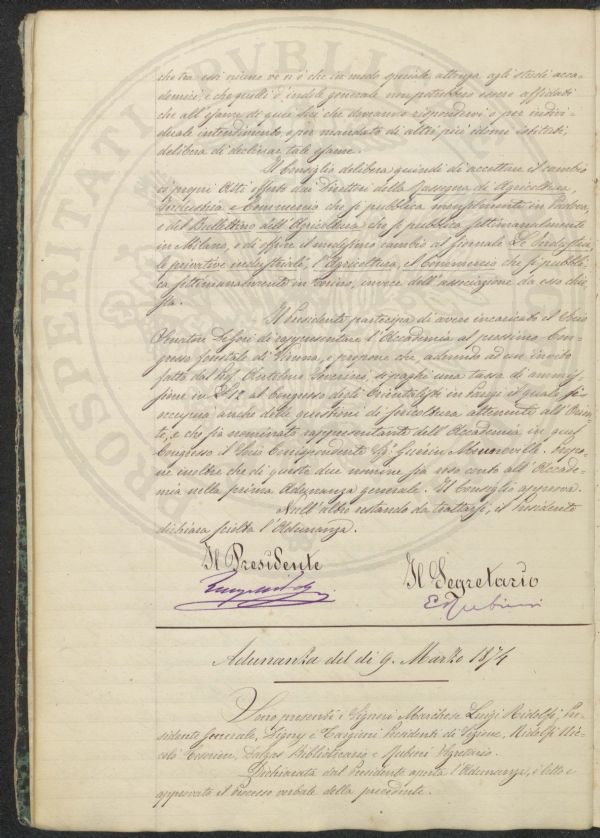 che tra essi niuno ve n'è che in modo speciale attenga agli studi acca-
demici, e che quelli d'indole generale non potrebbero essere affidati
che all'esame di quei Soci che devono rispondervi o per indivi-
duale intendimento o per mandato di altri più idonei istituti,
delibera di declinar tale esame.
Il Consiglio delibera quindi di accettare il cambio
co' propri Atti offerto dai Direttori della Rassegna di Agricoltura,
Industria e Commercio che si pubblica mensilmente in Padova,
e del Bullettino dell'Agricoltura che si pubblica settimanalmente
in Milano, e di offrire il medesimo cambio al giornale Le Industrie,
le privative industriali, l'Agricoltura, il Commercio che si pubbli-
ca settimanalmente in Torino, invece dell'associazione da esso chie-
sta.
Il Presidente partecipa di avere incaricato il Socio
Senatore De Gori di rappresentare l'Accademia al prossimo Con-
gresso forestale di Vienna, e propone che, aderendo ad un invito
fatto dal Prof. Antelmo Severini, si paghi una tassa di ammis-
sione in £ 12 al Congresso degli Orientalisti in Parigi il quale si
occuperà anche delle questioni di sericoltura attenenti all'Orien-
te, e che sia nominato rappresentante dell'Accademia in quel
Congresso il Socio Corrispondente Sig. Guérin Menneville. Propo-
ne inoltre che di queste due nomine sia reso conto all'Accade-
mia nella prima Adunanza generale. Il Consiglio approva.
Null'altro restando da trattarsi, il Presidente
dichiara sciolta l'Adunanza.
Il Presidente
Il Segretario
Adunanza del dì 9. Marzo 1874
Sono presenti i Signori Marchese Luigi Ridolfi, Pre-
sidente Generale, Digny e Targioni Presidenti di Sezione, Ridolfi Nic-
colò Tesoriere, Dalgas Bibliotecario e Rubieri Segretario.
Dichiarata dal Presidente aperta l'Adunanza, è letto e
approvato il Processo verbale della precedente.
PROSPERITATI PVBLIC